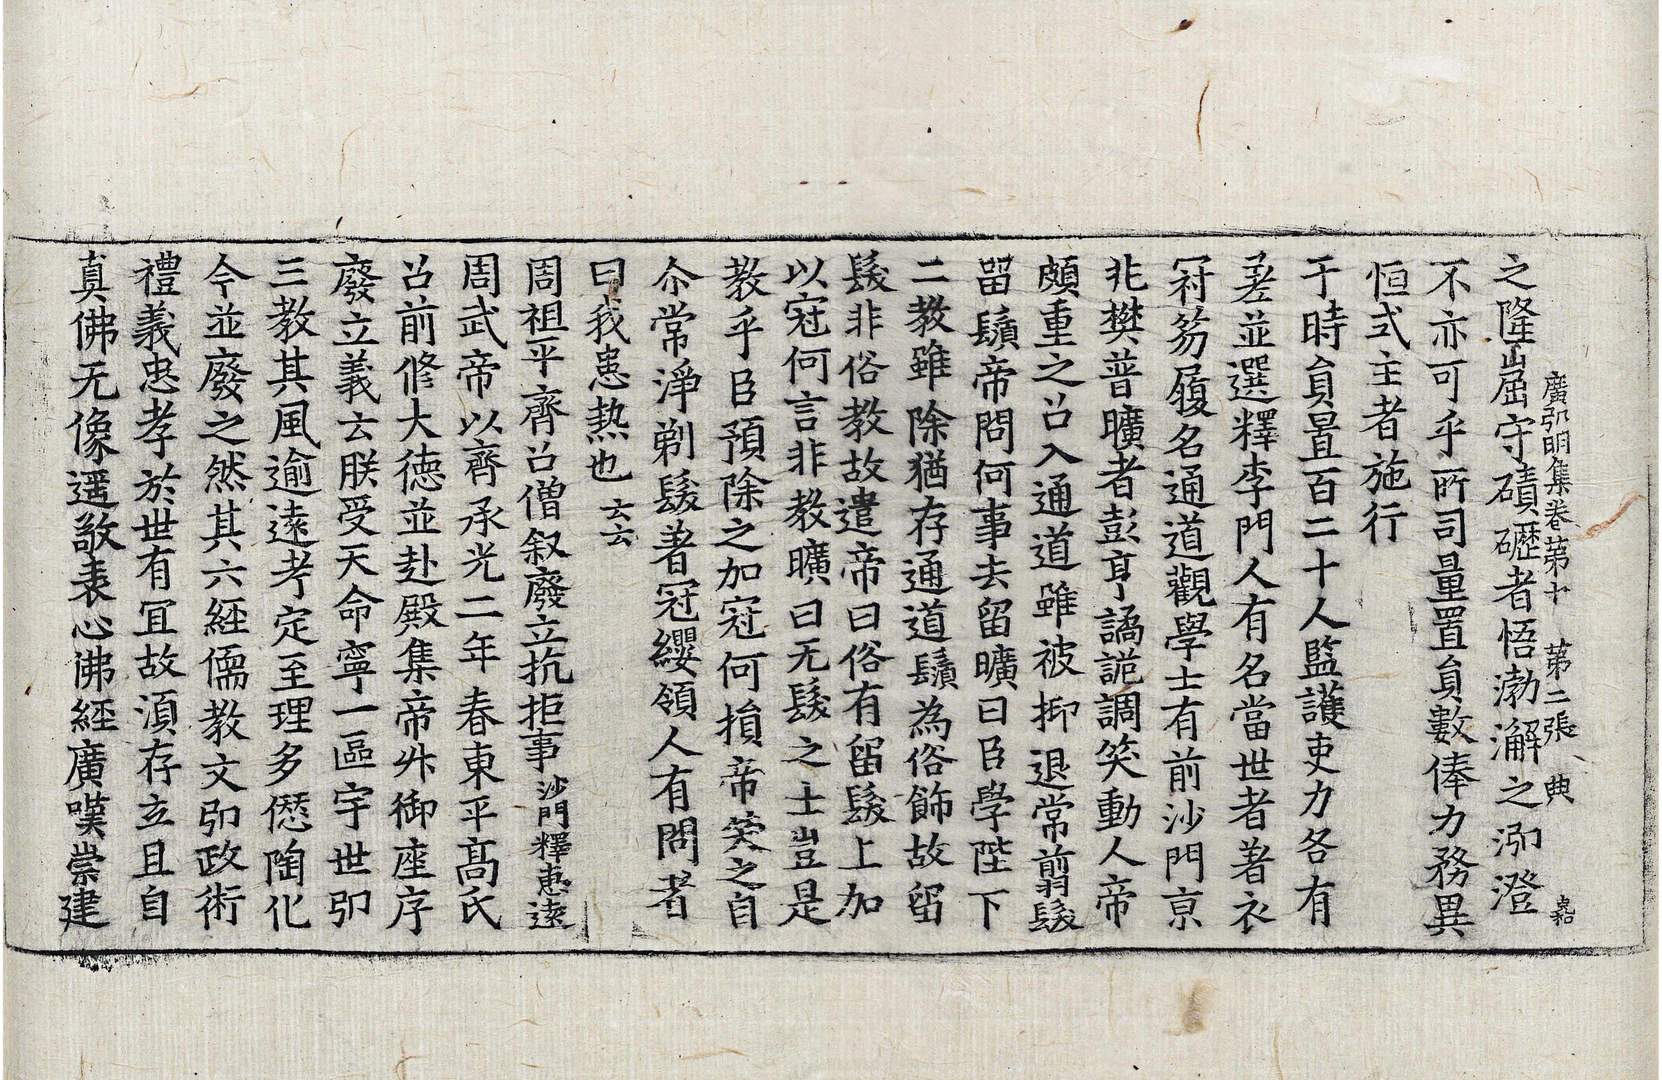 廣弘明集卷第十　第二張　典　嘉
之隆崫守磧礰者悟渤澥之泓澄
不亦可乎所司量置貟數俸力務異
恒式主者施行
于時貟置百二十人監護吏力各有
差並選釋李門人有名當世者著衣
冠笏履名通道觀學士有前沙門京
兆樊普曠者彭亨譎詭調笑動人帝
頗重之召入通道雖被抑退常翦髮
留鬚帝問何事去留曠曰臣學陛下
二教雖除猶存通道鬚為俗飾故留
髮非俗教故遣帝曰俗有留髮上加
以冠何言非教曠曰无髮之士豈是
教乎臣預除之加冠何損帝笑之自
尒常淨剃髮著冠纓領人有問者
曰我患熱也云云
周祖平齊召僧叙廢立抗拒事沙門釋惠遠
周武帝以齊承光二年春東平高氏
召前修大德並赴殿集帝升御座序
廢立義云朕受天命寧一區宇世弘
三教其風逾遠考定至理多愆陶化
今並廢之然其六經儒教文弘政術
禮義忠孝於世有冝故須存立且自
真佛无像遥敬表心佛經廣嘆崇建